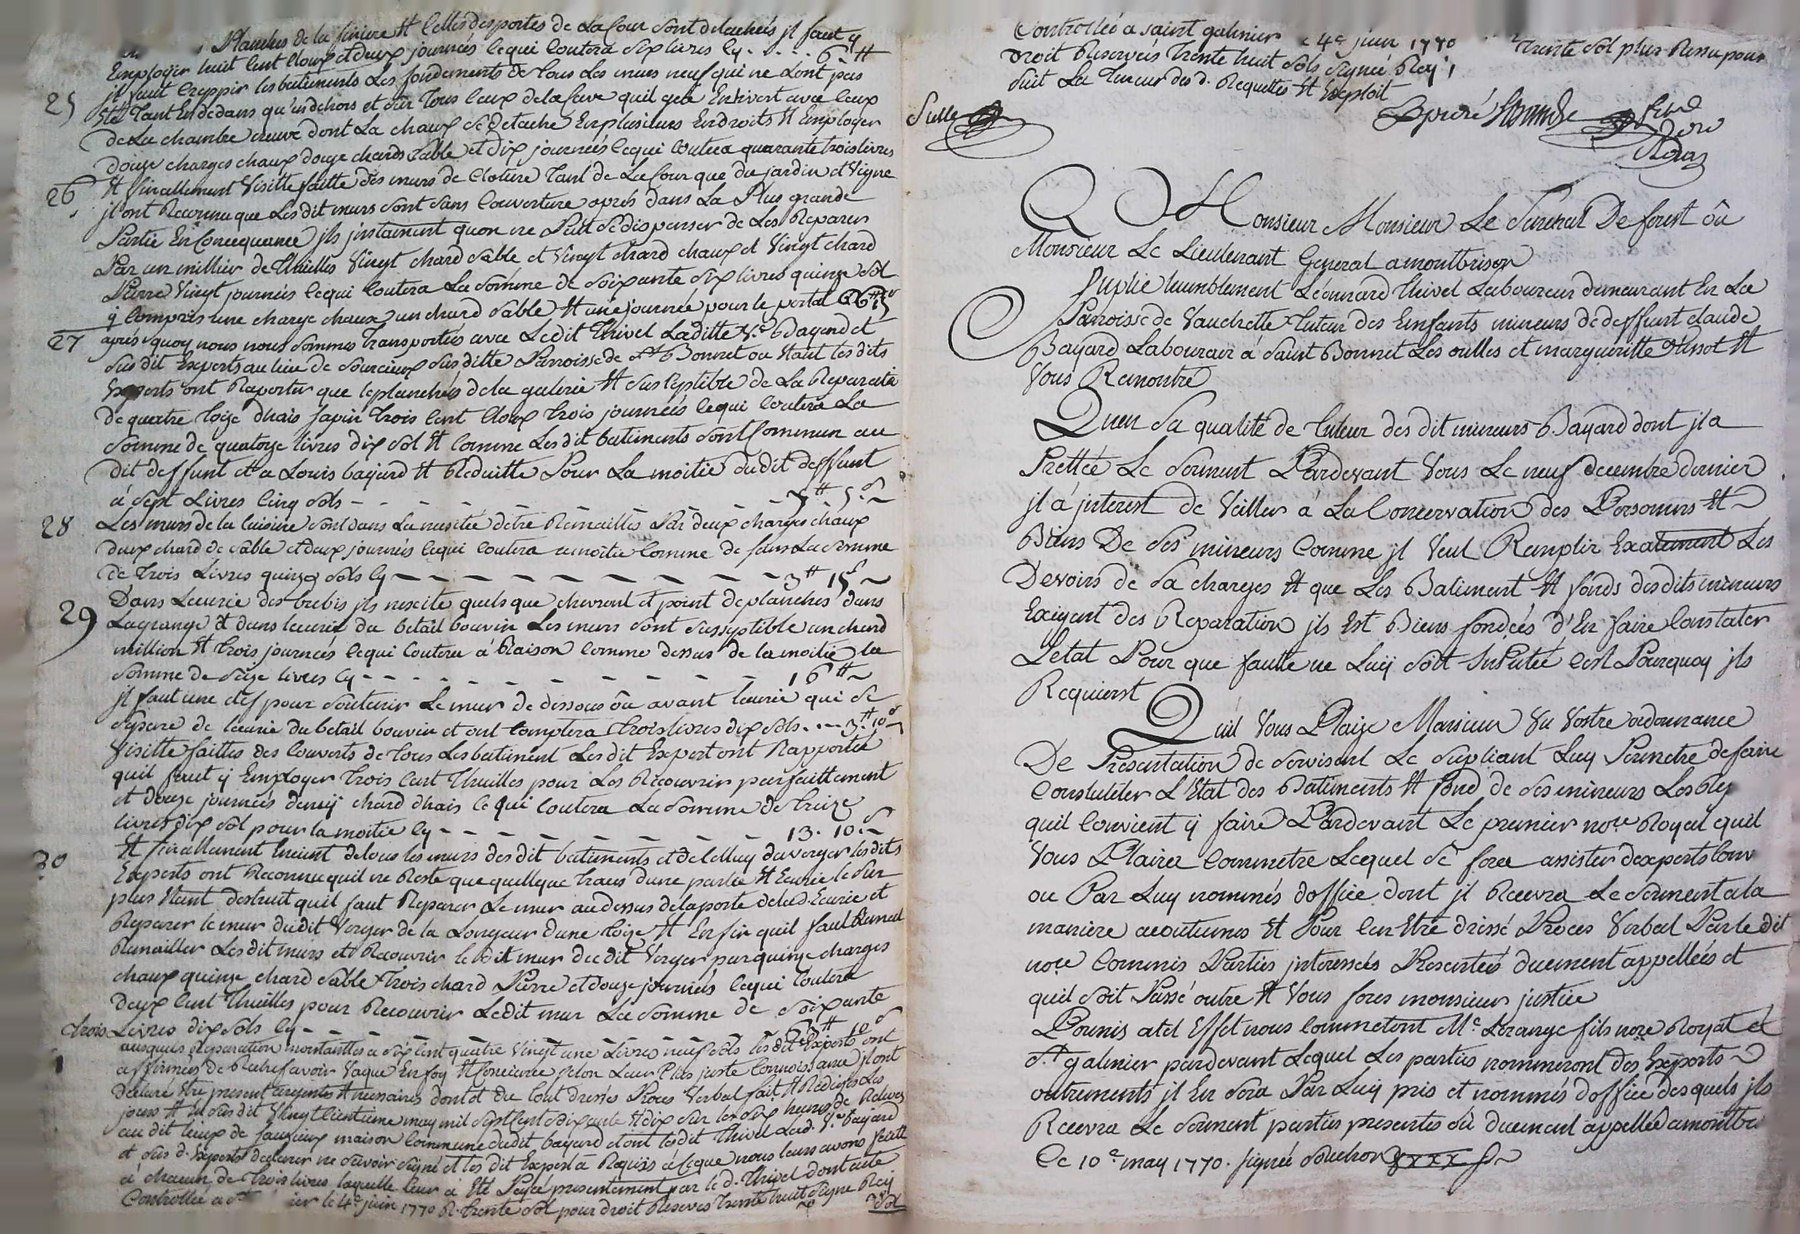 Planches de la feniere et celles des portes de La Cour sont detachés jl faut y
Employer huit cent cloux et deux journées ce qui coutera six livres Cy - - - 6 ₶
25 jl faut Creppir les batiments Les fondements de tous Les murs neuf qui ne sont pas
Tant En dedans qu'en dehors et sur tous ceux de la Cave quil gele En hivert avec ceux
de La chambre neuve dont La chaux se detache En plusieurs Endroits et Employer
douze charges chaux douze chards sable et dix journées ce qui coutera quarante trois livres
26 Et finallement Visitte faitte des murs de Cloture Tant de La Cour que du jardin et Vigne
jls ont Reconnu que Les dit murs sont sans Couverture après dans La Plus grande
Partie En Consequance jls jnstament quon ne Peut se dispenser de Les Reparer
Par un millier de Thuilles Vingt chard sable et Vingt chard chaux et Vingt chard
Pierre Vingt journées ce qui Coutera La Somme de soixante six livres quinze sol
y Compris une charge chaux un chard sable et une journée pour le portal 66 ₶ 15 s
27 apres quoy nous nous sommes Transportés avec Le dit Thivel Laditte Ve Bayard et
sus dit Experts au lieu de sus ditte Parroisse de st Bonnet ou Etant les dits
Experts ont Raporter que le planches de la galerie Et susceptible de La Reparer
de quattre toize dhais sapin trois cent cloux trois journées ce qui Coutera La
Somme de quatorze livres dix sol Et comme Les dit batiments sont Commun au
dit deffunt et a Louis bayard Et Reduitte Pour La moitié du dit deffunt
a sept Livres Cinq sols - - - - - - 7 ₶ 5 s
28 Les murs de la Cuisine sont dans La necsitée dêtre Remaillés Par deux charges chaux
deux chard de sable et deux journées ce qui coutera a moitié Comme de sens La somme
de trois Livres quinze sols Cy - - - - - - 3 ₶ 15 s
29 Dans Lecurie des brebis jls nescite quelsque chevront et point de planches dans
Lagrange et dans lecurie du betail bouvin Les murs sont susseptible un chard
million Et trois journees ce qui coutera a Raison Comme dessus de la moitié La
somme de seize livres Cy - - - - - - 16 ₶
jl faut une clef pour soutenir Le mur de dessous où avant lecurie qui se
separe de lecurie du betail bouvin et ont Comptera trois livres dix sols - - - 3 ₶ 10 s
Visitte faittes des Couverts de tous Les batiment Les dit Expert ont Rapportée
quil faut y Employer trois Cent Thuilles pour Les Recouvrir parfaittement
et douze journées demy chard dhais Ce qui coutera La somme de treize
livres dix sol pour la moitié Cy - - - - - - 13 . 10 s
30 Et finallement Enciint de tous les murs des dit batiments et de Celluy du verger les dits
Experts ont Reconnu quil ne Reste que quelque traces dune partie Et Ecurie le sur
plus Etant destruit quil faut Reparer Le mur au dessus de la porte de ladt Ecurie et
Reparer le mur du dit Verger de la Longeur dune toize Et Enfin quil faut
Remailler Les dit murs et Recouvrir le dit mur du dit Verger par quinze charges
chaux quinze chard sable trois chard Pierre et douze journées ce qui Coutera
deux Cent Thuilles pour Recouvrir Ledit mur La somme de soixante
trois Livres dix sols Cy - - - - - - 63 ₶ 10 s
ausquels Reparation montanttes a six Cent quatre Vingt une Livres neuf sols les dit Experts ont
affirmées de Plus savoir Vaqué En foy Et Conscience selon Leur Plus juste Connoissance jls ont
declaré Etre present Et nessaires dont et du tout dressés Proces Verbal fait Et Redigés Les
jours Et an sus dit Vingt cientieme may mil sept cent soixante Et dix sur les six heures de Relevez
au dit lieux de maison Commune du dit bayard et ont les dit Thivel Lad. Ve Bayard
et sus d. Experts declarer ne savoir signé et les dit Expert a Requis a Ce que nous leurs avons fait
à chacun de trois livres laquelle leur a Eté Payée presentement par le d. Thivel dont acte
Controllée a st ier le 4e juin 1770 R. trente sol pour droit Reserves trente huit s signe Rey
Controllée a saint galmier le 4e juin 1770 trente sol plus Ressu pour
droit Reservés trente huit sols signée Rey
suit La Teneur des d. Requettes et Exploit
Monsieur Monsieur Le Senechal De forest où
Monsieur Le Lieutenant General a montbrison
Suplie humblement Léonnard thivel Laboureur demeurant En La
Parroisse de Vauchette tuteur des Enfants mineurs de deffunt claude
Bayard Laboureur à Saint Bonnet Les oulles et margueritte Et
Vous Remontre
Quen sa qualité de tuteur des dit mineurs Bayard dont jl a
Prettée Le serment Pardevant Vous Le neuf decembre dernier
jl a jnterest de Veiller à La Concervation des Personnes Et
Biens De ses mineurs Comme jl Veut Remplir Exatement Les
Devoirs de sa charges Et que Les Batiment Et fonds des dits mineurs
Exigent des Reparation jls Est Biens fondées d'En faire Constater
Letat Pour que fautte ne Luy soit jnPutée cest Pourquoy jls
Requierst
Quil Vous Plaize Monsieur Vu Vostre ordonnance
De Presentation de servisent Le supliant Luy Permetre de faire
Constatéter L'Etat des Batiments Et fond de ses mineurs Les
quil Convient y faire Pardevant Le premier nore Royal quil
Vous Plaira Commetre Lequel se fera assister dexperts Conv
ou Par Luy nommés doffice dont jl Recevra Le serment a la
manière acoutumés Et Pour En Etre dressé Proces Verbal Par le dit
nore Commis Parties jnteressées Presentées duement appellées et
quil soit Passé outre Et Vous feres monsieur justice
Permis a tel Effet nous Commetont Me Lorange fils nore Royal à
st galmier pardevant Lequel Les parties nommeront des Experts
autrements jl En sera Par Luy pris et nommés doffice desquels jls
Recevra Le serment parties presentes où duement appellée a montbri
Ce 10e may 1770. signée Souchon